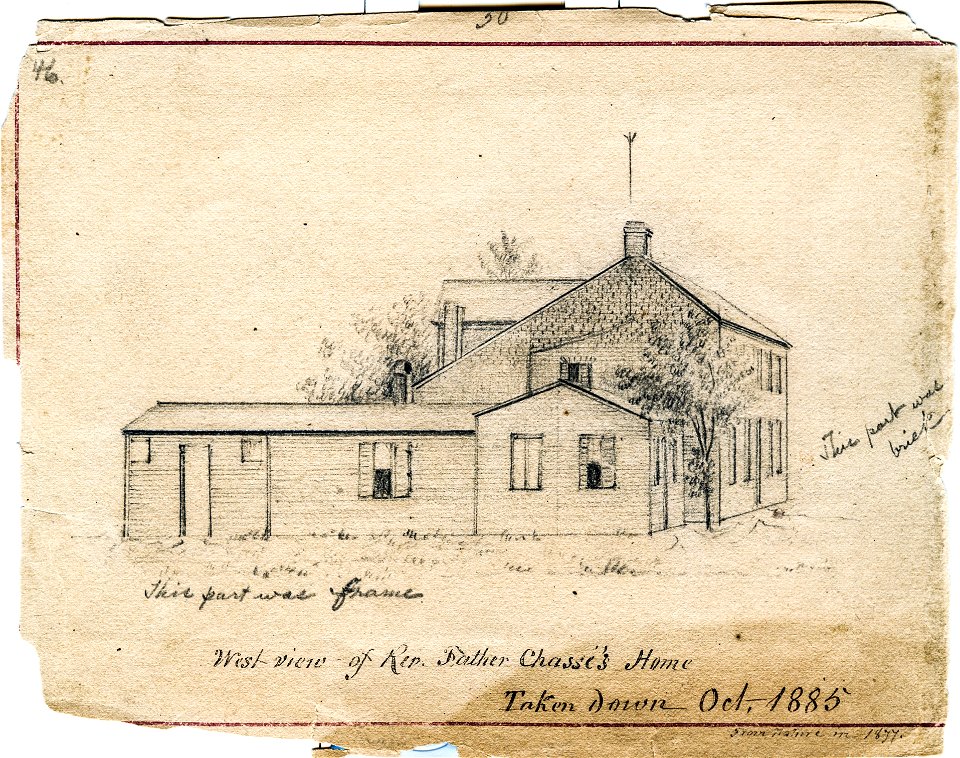 30
46.
This part was
brick
This part was frame
West view of Rev. Father Chassé's Home
Taken Down Oct, 1885
From nature in 1877.